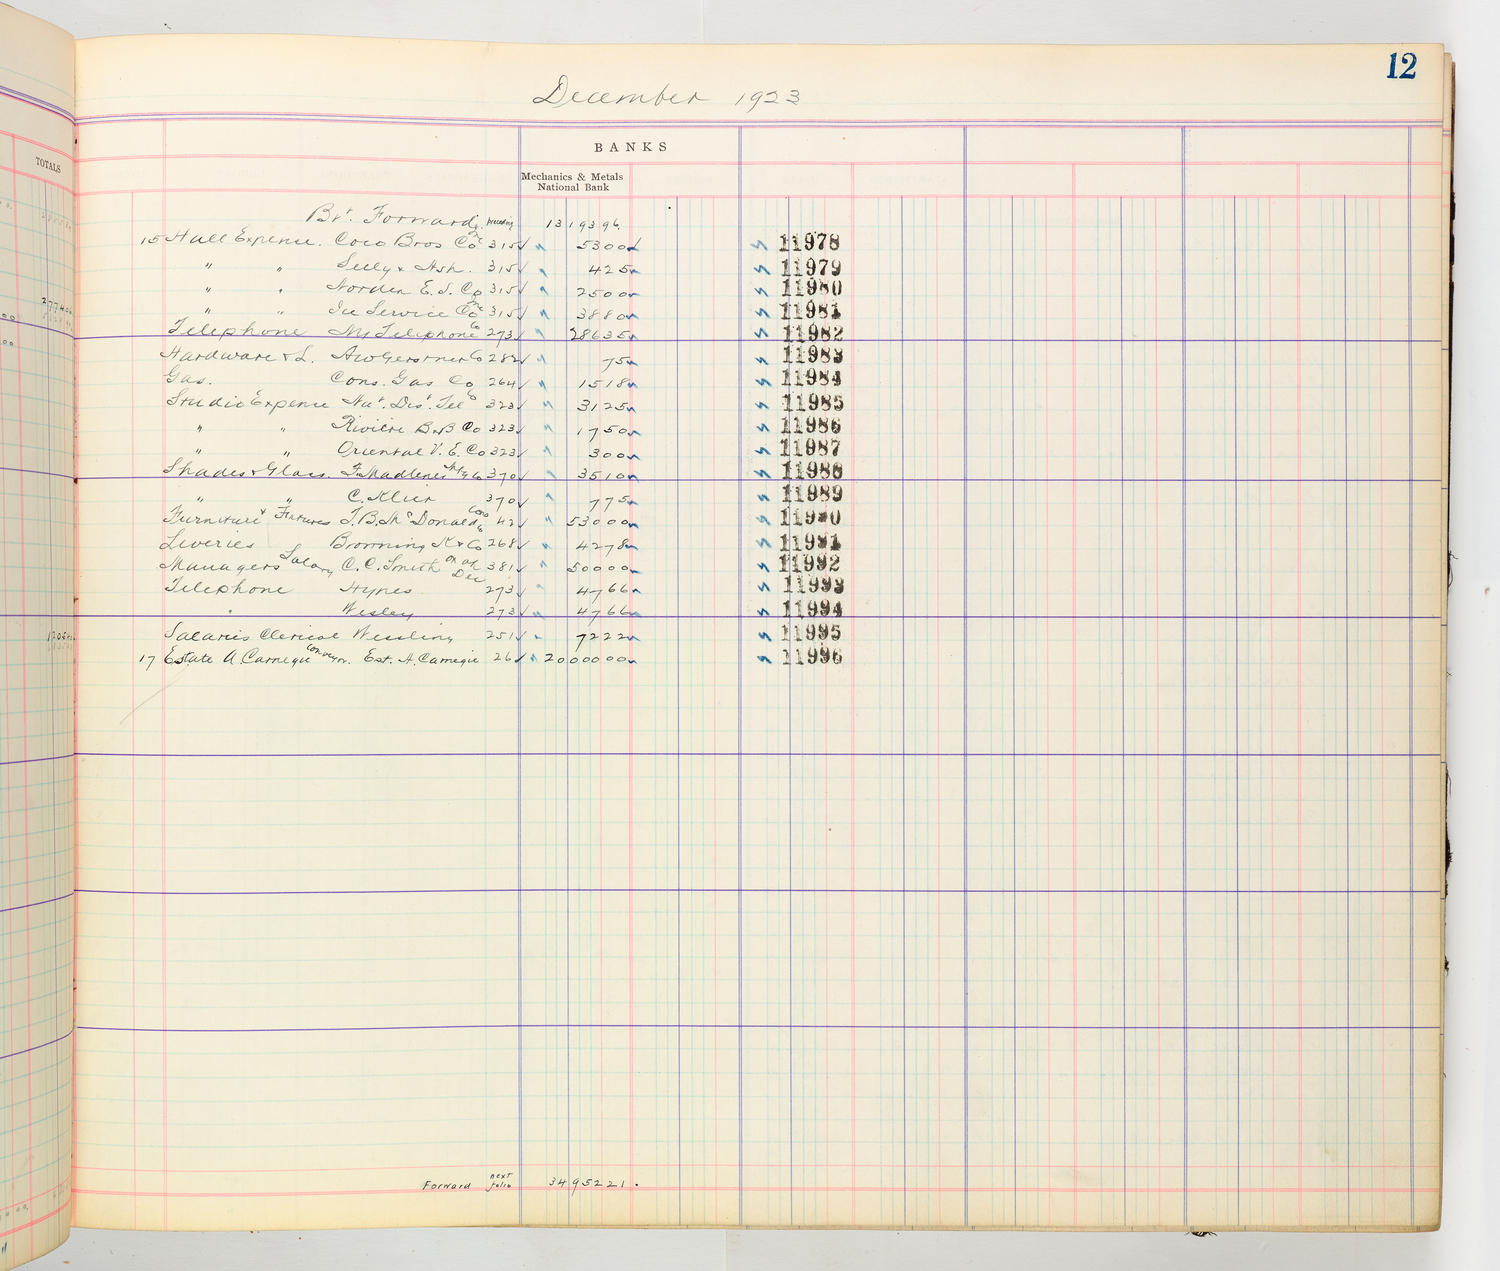 12
December 1923
TOTALS
BANKS
Mechanics & Metals
National Bank
Brt. Forward preceding 1319396
15 Hall Expense. Coco Bros Co Inc 315 53000 11978
" " Seely & Ash. 315 425 11979
" " Norden E. S. Co 315 2500 11980
" " Ice Service Co Inc 315 3880 11981
Telephone Ny Telephone Co 273 28635 11982
Hardware & L. Aw Gerstner Co 282 75 11983
Gas. Cons. Gas Co 264 1518 11984
Studio Expense Nat. Dist. Tel Co 323 3125 11985
" " Riviere B & B Co 323 1750 11986
" " Oriental V. E. Co 323 300 11987
Shades & Glass. 370 3510 11988
" " C. Klier 370 775 11989
Furniture & Fixtures T. B. McDonald Cons Co 42 53000 11990
Liveries Browning K & Co 268 4278 11991
Managers Salary C. C. Smith on a/c Dec 381 50000 11992
Telephone Hynes 273 4766 11993
" Wesley 273 4766 11994
Salaries Clerical Wessling 251 7222 11995
17 Estate A. Carnegie Est. A. Carnegie 26 2000000 11996
Forward next folio 3495221.